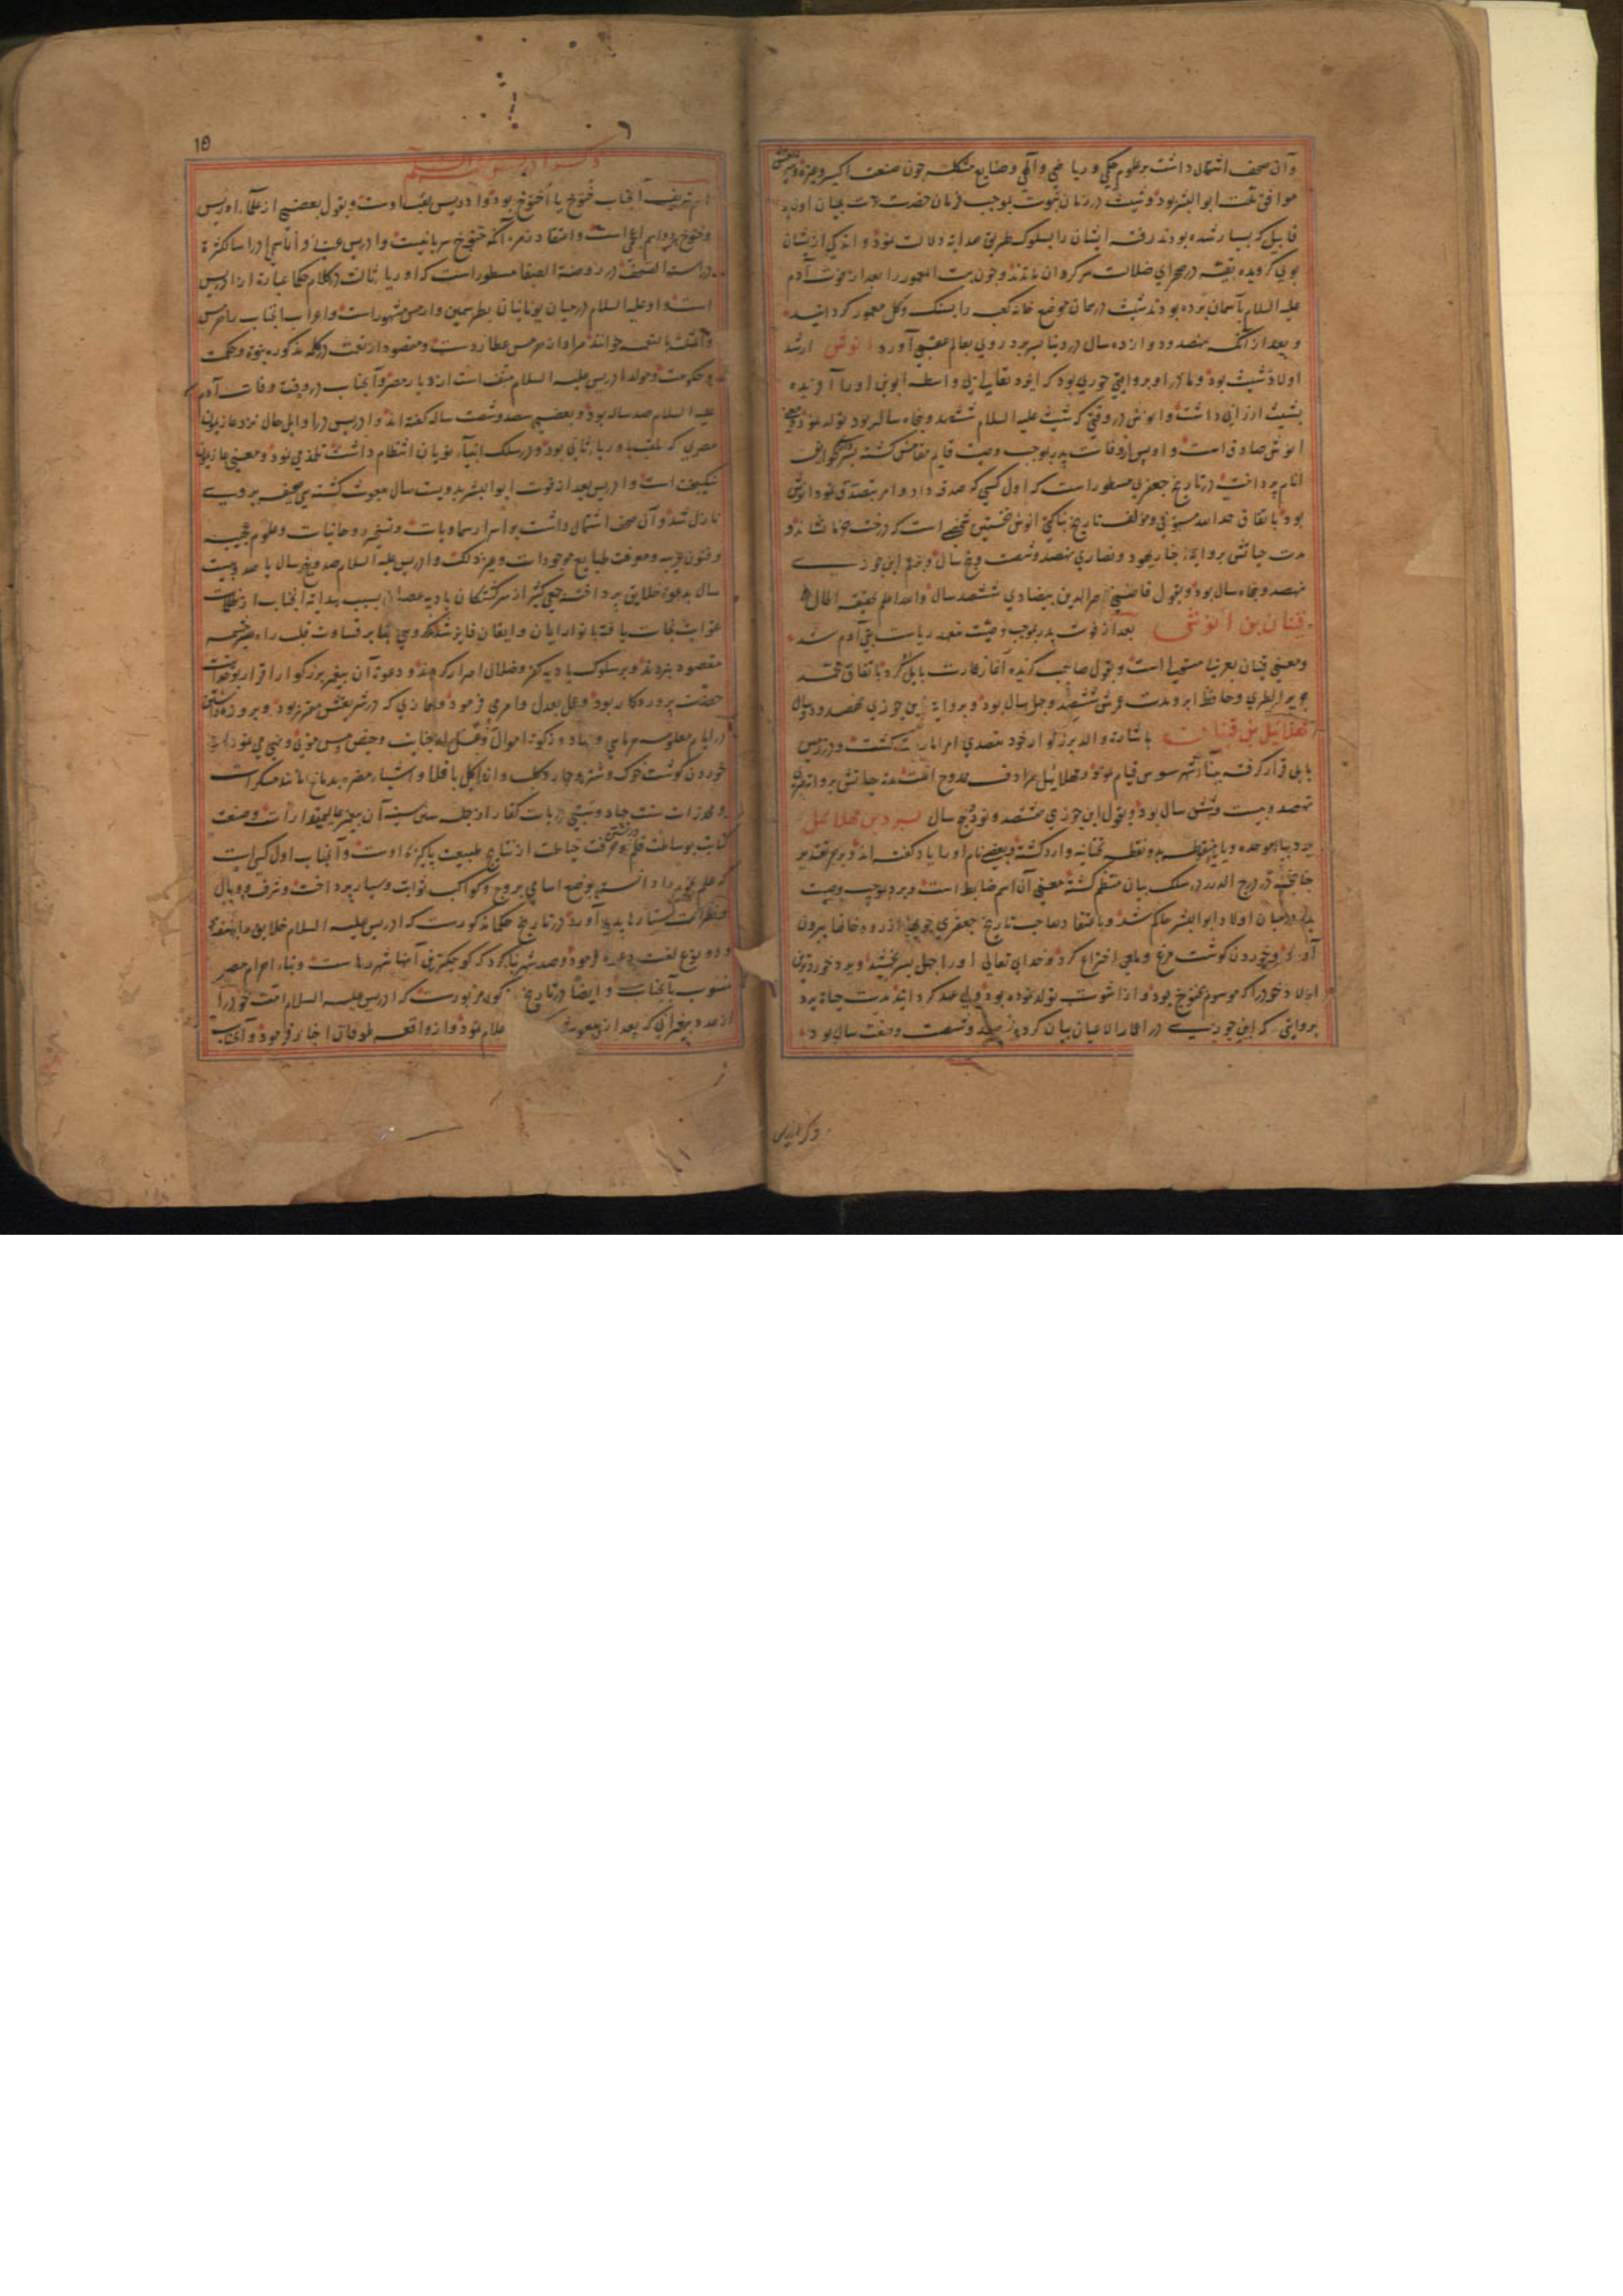 وآن صحف اشتمال داشت بر علوم حکمی و ریاضی و الهی و صنایع مشکله چون صنعت اکسیر و غیره
موافق ملت ابو البشر بود و شیث در زمان نبوت بموجب فرمان حضرت عزت بمیان اولاد
قابیل که بسیار شده بودند رفته ایشان را بسلوک طریق هدایة دلالت نمود و اندکی از یشان
بوی کرویده بقیه در صحرای ضلالت سرکردان ماندند و چون بیت المعمور را بعد از فوت آدم
علیه السلام بآسمان برده بودند شیث در همان موضع خانه کعبه را بسنک و کل معمور کردانید
و بعد از آنکه نهصد و دوازده سال در دنیا بسر برد روی بعالم عقبی آورد انوش ارشد
اولاد شیث بود و مادر او بروایتی حوری بود که ایزد تعالی بی واسطه ابوین او را آفریده
بشیث ارزانی داشت و انوش در وقتی که شیث علیه السلام ششصد و پنجاه ساله بود تولد نمود و معنی
انوش صادق است و او پس از وفات پدر بموجب وصیت قایم مقامش کشته
انام پرداخت در تاریخ جعفری مسطور است که اول کسی که صدقه داد و امر بتصدق نمود انوش
بود باتفاق حمد الله مستوفی و مؤلف تاریخ بناکتی انوش نخستین شخصی است که درخت خرما نشاند و
مدت حیاتش بروایة احبار یهود و نصاری نهصد و شصت و پنج سال و بزعم ابن جوزی
نهصد و پنجاه سال بود و بقول قاضی ناصر الدین بیضاوی ششصد سال والله اعلم بحقیقه الحال
قینان بن انوش بعد از فوت پدر بموجب وصیت متعهد ریاست بنی آدم شد
و معنی قینان بعربیا مستولی است و بقول صاحب کزیده آغاز عمارت بابل کرد باتفاق محمد
جریر الطبری و حافظ ابرو مدت عمرش ششصد و چهل سال بود و بروایة ابن جوزی نهصد و ده سال
مهلائیل بن قینان باشارة والد بزرکوار خود متصدی امر امارت کشت و در زمین
بابل قرار کرفته ببناء شهر سوس قیام نمود و مهلائیل مرادف ممدوح است مدة حیاتش بروایة طبری
نهصد و بیست و شش سال بود و بقول ابن جوزی هشتصد و نود و پنج سال یرد بن مهلائیل
یرد بباء موحده و یا منقوطه بدو نقطه تحتانیه وارد کشته و بعضی نام او را یارد کفته اند و بر هر تقدیر
چنانچه در درج الدرر در سلک بیان منتظم کشته معنی آن اسم ضابط است و یرد بموجب وصیت
پدر در میان اولاد ابو البشر حاکم شد و باعتقاد صاحب تاریخ جعفری جویها از رودخانها بیرون
آورد و خوردن کوشت مرغ و ماهی اختراع کرد و خدای تعالی او را چهل پسر بخشید و یرد خوردترین
اولاد خود را که موسوم بخنوخ بود و از اشوت تولد نموده بود ولی عهد کردانید مدت حیاة یرد
بروایتی که ابن جوزی در اعمار الاعیان بیان کرده نهصد و شصت و هفت سال بود
ذکر ادریس
15
ذکر ادریس علیه السلم
اسم شریف آنجناب خنوخ یا اخنوخ بود و ادریس لقب اوست و بقول بعضی از علماء ادریس
و خنوخ هر دو اسم اعجمی است و اعتقاد زمره آنکه خنوخ سریانیست و ادریس عربی و انما سمی ادریسا لکثرة
دراسته الصحف در روضة الصفا مسطور است که اوریا ثالث در کلام حکما عبارة از ادریس
است و او علیه السلام در میان یونانیان بطرسمین و ارمس مشهور است و اعراب آنجناب را هرمس
و المثلث بالنعمه خوانند مراد از هرمس عطاردست و مقصود از نعت در کلمه مذکوره نبوة و حکمت
و حکومت و مولد ادریس علیه السلام منف است از دیار مصر و آنجناب در وقت وفات آدم
علیه السلام صد ساله بود و بعضی سیصد و شصت ساله کفته اند و ادریس در اوایل حال نزد غاذیمون
مصری که ملقب باوریا ثانی بود و در سلک انبیاء یونیان انتظام داشت تلمذ می نمود و معنی غاذیمون
نیکبخت است و ادریس بعد از فوت ابو البشر بدویست سال مبعوث کشته سی صحیفه بر وی
نازل شد و آن صحف اشتمال داشت بر اسرار سماویات و تسخیر روحانیات و علوم عجیبه
و فنون غریبه و معرفت طبایع موجودات و غیر ذلک و ادریس علیه السلام صد و پنج سال یا صد و بیست
سال بدعوة خلایق پرداخت جمعی کثیر از سرکشتکان بادیه عصیان بسبب هدایة آنجناب از ظلمات
غوایت نجات یافته بانوار ایمان و ایقان فایز شدند و کروهی بنا بر قساوت قلب راه بسرچشمه
مقصود نبردند و بر سلوک بادیه کفر و ضلال اصرار کردند و دعوة آن پیغمبر بزرکوار اقرار بوحدانیت
حضرت پروردکار بود و عمل بعدل و امر می فرمود و بنمازی که در شریعتش مقرر بود و بروزه داشتن
در ایام معلومه هر ماهی و جهاد و زکوة اموال و غسل از جنابت و حیض و مس موتی و نهی می نمود از
خوردن کوشت خوک و شتر و حمار و کلب و از اکل باقلا و اشیاء مضره بدماغ مانند مسکرات
و مخدرات سنت جهاد و سبی ذریات کفار از جمله سنن سنیه آن پیغمبر عالیمقدار است و صنعت
کتابت بوساطت قلم و حرفت خیاطت از نتایج طبیعت پاکیزه اوست و آنجناب اول کسی است
که علم نجوم را دانسته بوضع اسامی بروج و کواکب ثوابت و سیار پرداخت و شرف و وبال
و نظرات ستارها پدید آورد در تاریخ حکما مذکورست که ادریس علیه السلام خلایق را بهفتاد
و دو نوع لغت دعوة فرمود و صد شهر بنا کرد که کوچکترین آنها شهر رهاست و بناء اهرام مصر
منسوب بآنجنابست و ایضا در تاریخ مذکور مزبورست که ادریس علیه السلام امت خود را
از عدد پیغمبرانی که بعد از ز مبعوث علام نمود و از واقعه طوفان اخبار فرمود و آنجناب